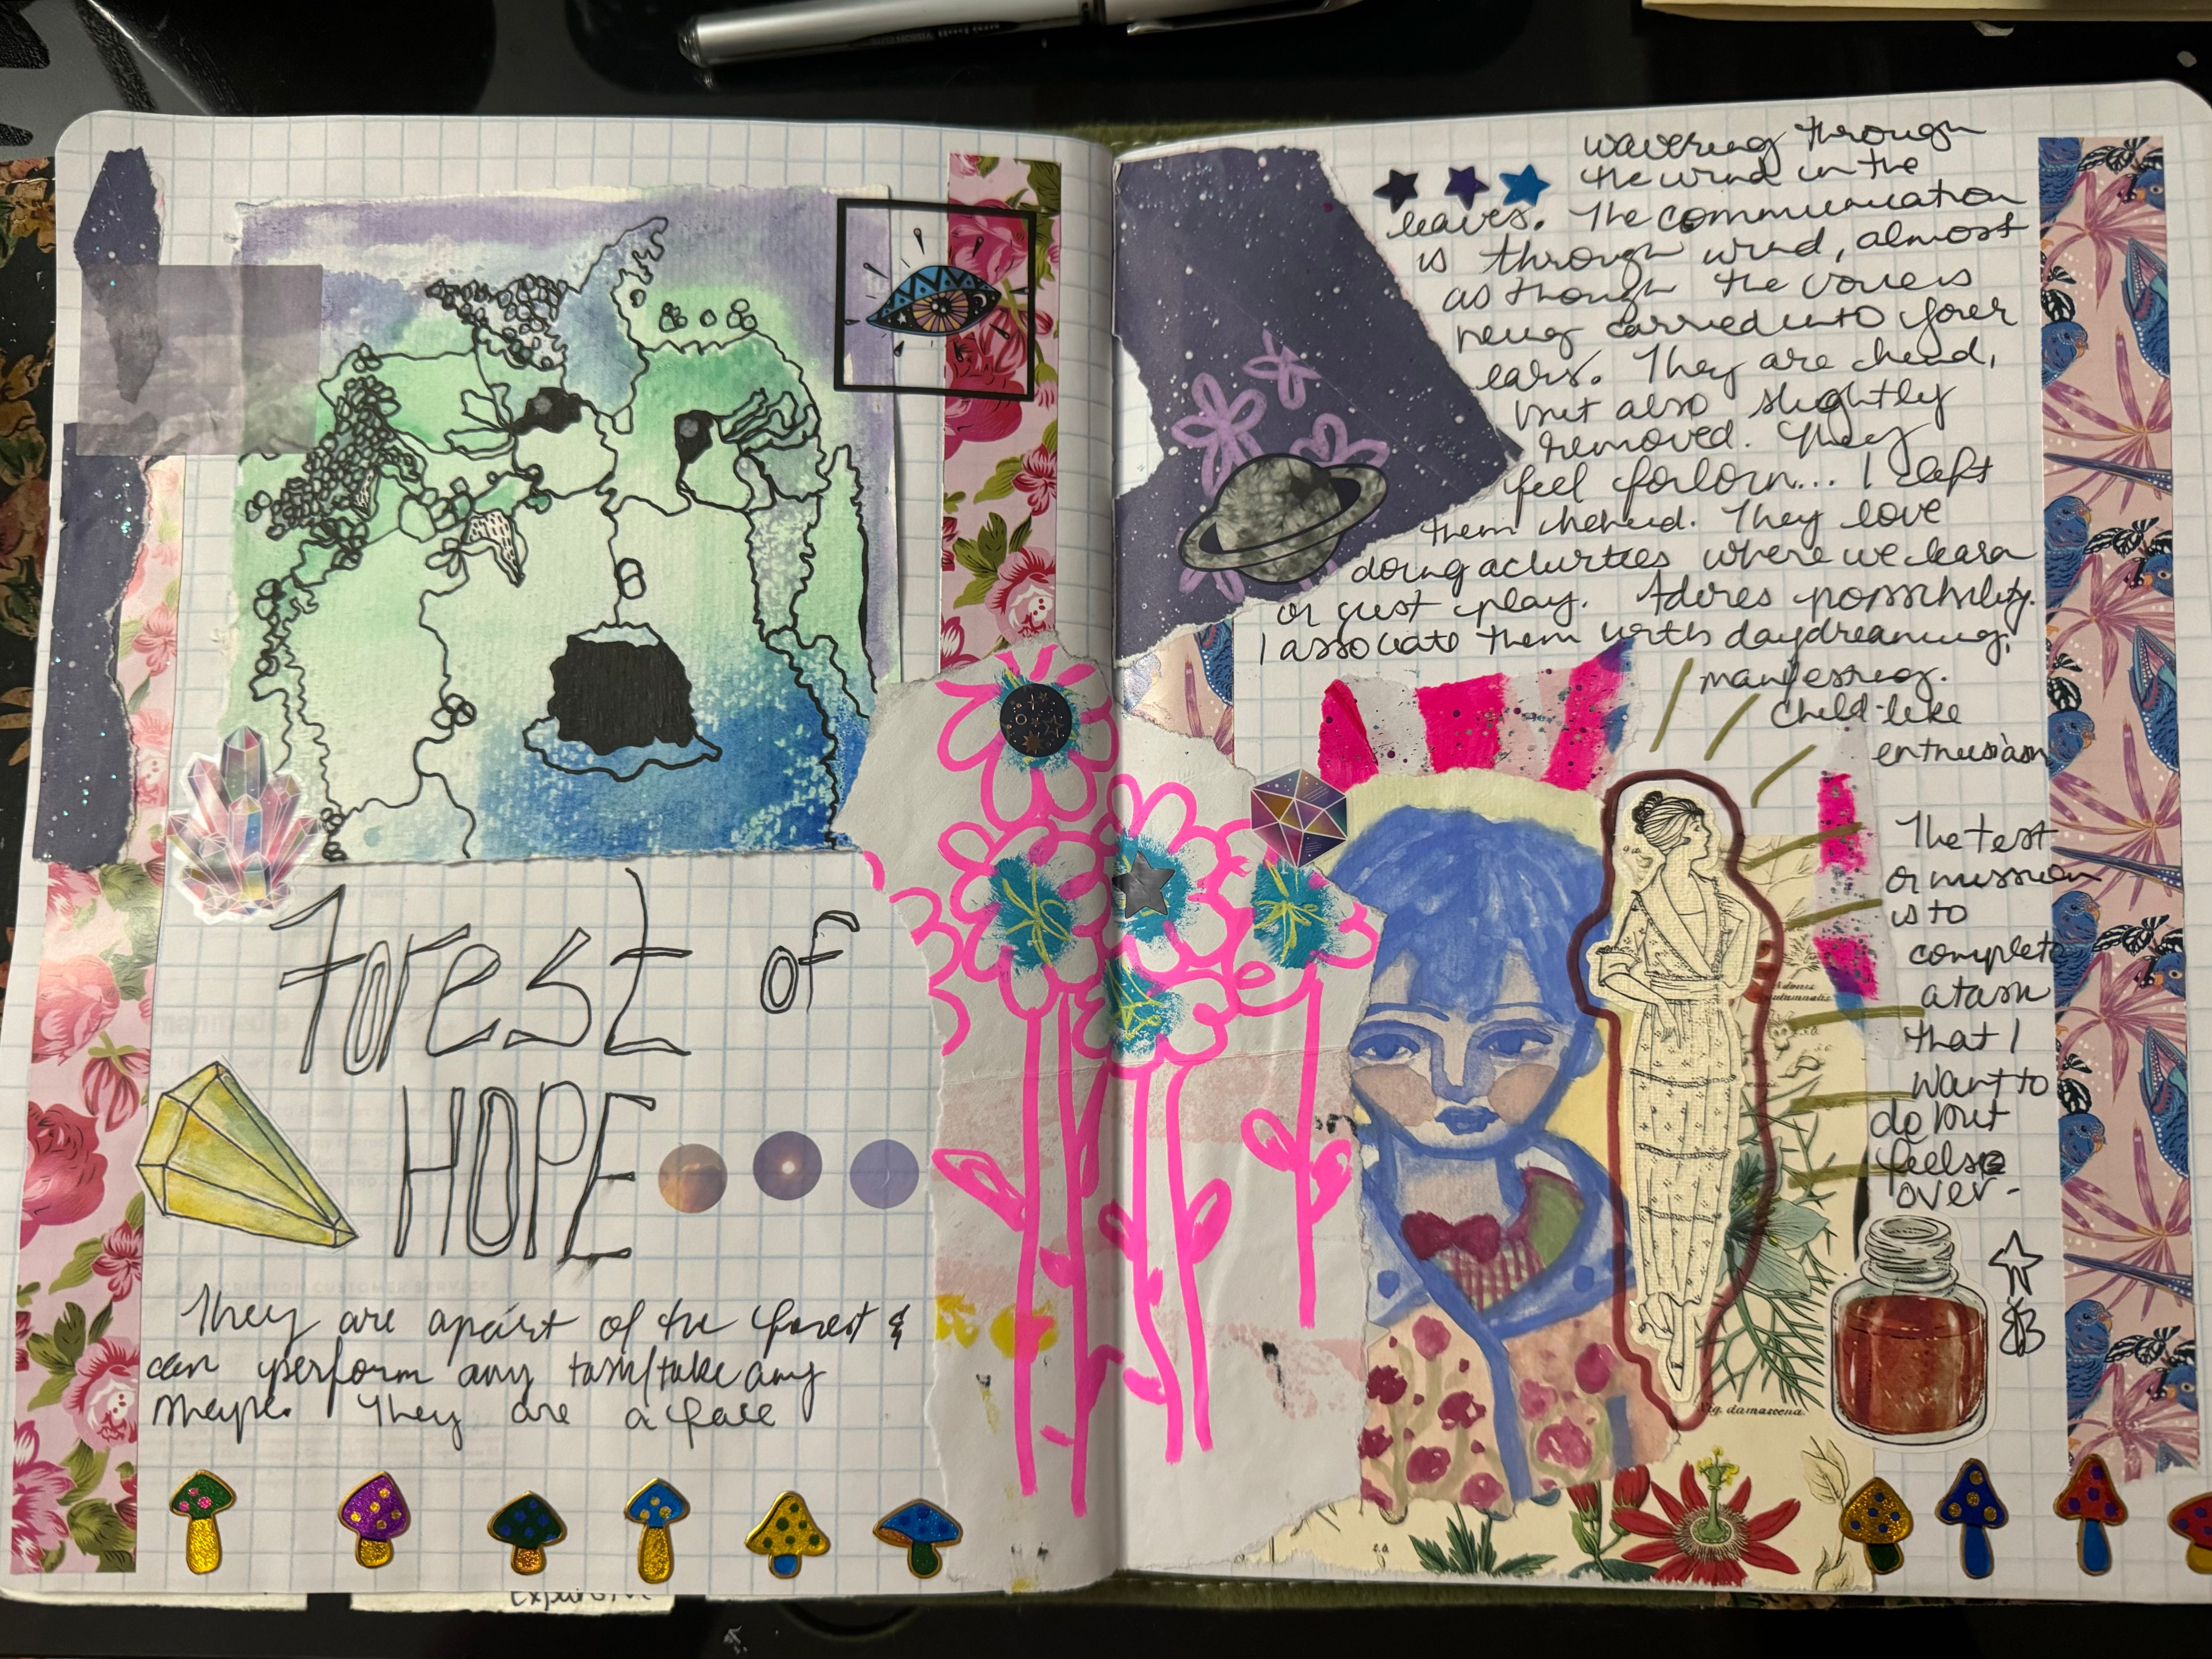 Forest of
HOPE
They are apart of the forest &
can perform any task/take any
shape. They are a face
wavering through
the wind in the
leaves. The communication
is through wind, almost
as though the voice is
being carried into your
ears. They are kind,
but also slightly
removed. They
feel forlorn... I left
them behind. They love
doing activities where we learn
or just play. Adires possibility.
I associate them with daydreaming,
manifesting.
child-like
enthusiasm
The test
or mission
is to
complete
a task
that I
want to
do but
feels
over-
Nig. damascena.